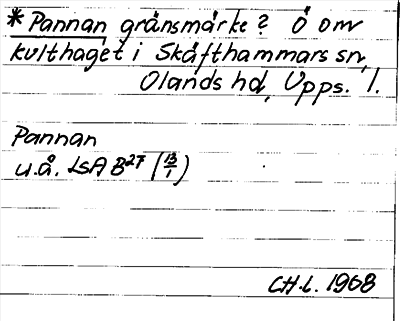 *Pannan gränsmärke? Ö om
Kulthaget i Skäfthammars sn,
Olands hd, Upps. l.
Pannan
u.å. LSA B27 (13/1)
CH.L. 1968